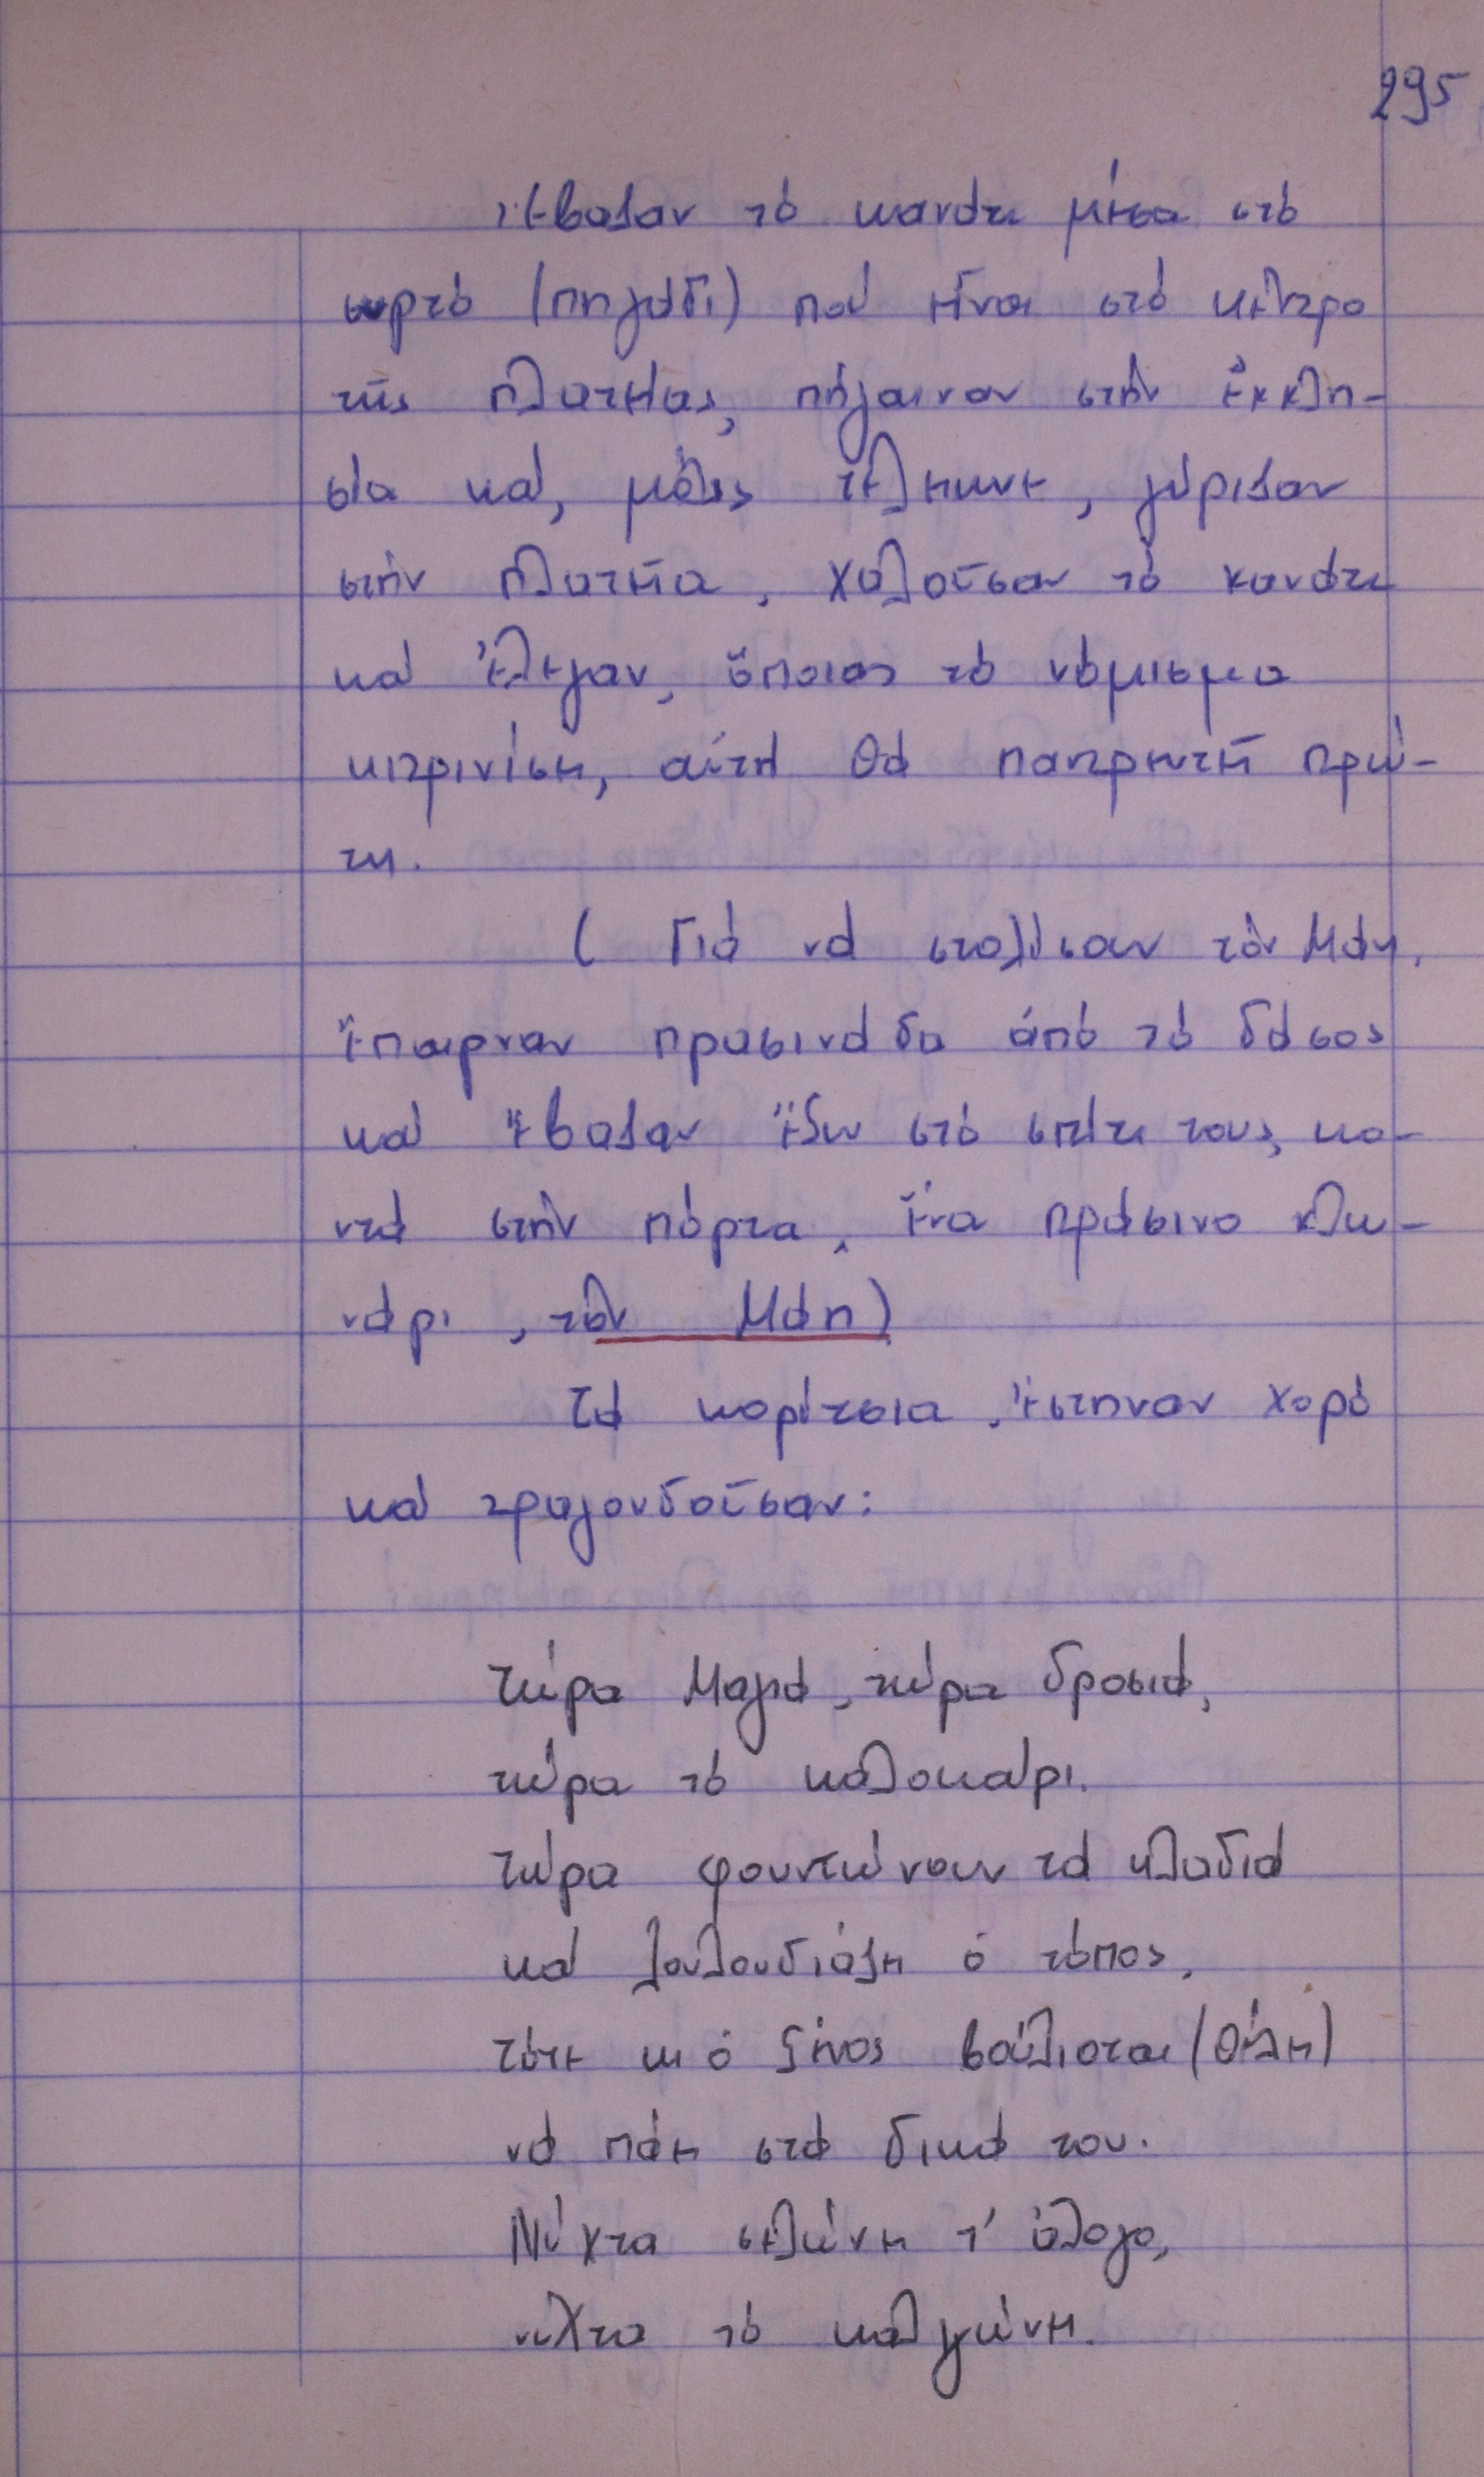 295
Έβαζαν τό κανάτι μέσα στό
συρτό (πηγάδι) πού είναι στό κέντρο
τῆς πλατείας, πήγαιναν στήν Ἐκκλη-
σία καί, μόλις τέλειωνε, γύριζαν
στήν πλατεῖα, χαλοῦσαν τό κανάτι
καί ἔλεγαν, ὅποιας τό νόμισμα
κιτρινίσει, αὐτή θά παντρευτεῖ πρώ-
τη.
( Γιά νά στολίσουν τόν Μάη,
ἔπαιρναν πρασινάδα ἀπό τό δάσος
καί ἔβαζαν ἔξω στό σπίτι τους, κο-
ντά στήν πόρτα, ἕνα πράσινο κλω-
νάρι, τόν Μάη)
Τά κορίτσια, ἔστηναν χορό
καί τραγουδοῦσαν:
Τώρα Μαγιά, τώρα δροσιά,
τώρα τό καλοκαίρι.
Τώρα φουντώνουν τά κλαδιά
καί λουλουδιάζει ὁ τόπος,
τότε κι ὁ ξένος βούλιεται (θέλει)
νά πάει στά δικά του.
Νύχτα σελώνει τ' ἄλογο,
νύχτα τό καλιγώνει.